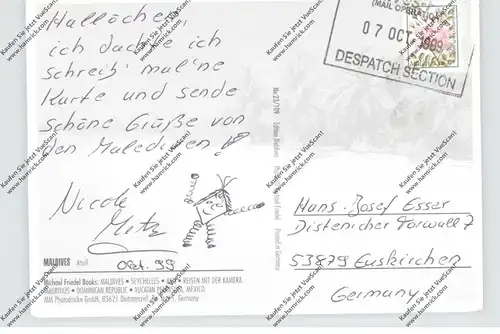 Hallöchen,
ich dachte ich
schreib' mal 'ne
Karte und sende
schöne Grüße von
den Malediven!
Nicole
Metz
Okt. 99
MALDIVES Atoll
Michael Friedel Books: MALDIVES • SEYCHELLES • REISEN MIT DER KAMERA
MAURITIUS • DOMINICAN REPUBLIC • YUCATAN MEXICO
MM-Photodrucke GmbH, 83623 Dietramszell Germany
No 23/109 Edition Malediven Friedel Printed in Germany
(MAIL OPERATION)
07 OCT 1999
DESPATCH SECTION
Hans-Josef Esser
Disternicher Torwall 7
53879 Euskirchen
Germany
Kaufen Sie jetzt VueScan!
www.hamrick.com